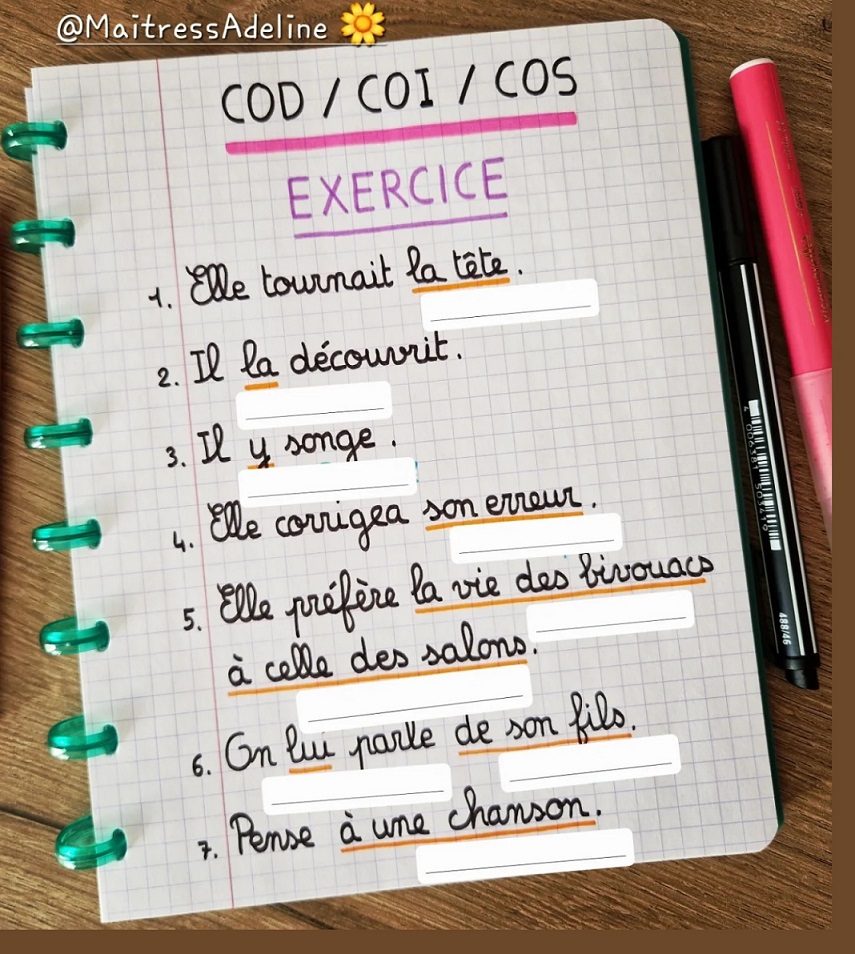 @MaitressAdeline
COD / COI / COS
EXERCICE
1. Elle tournait la tête.
2. Il la découvrit.
3. Il y songe.
4. Elle corrigea son erreur.
5. Elle préfère la vie des bivouacs
à celle des salons.
6. On lui parle de son fils.
7. Pense à une chanson.
488/46